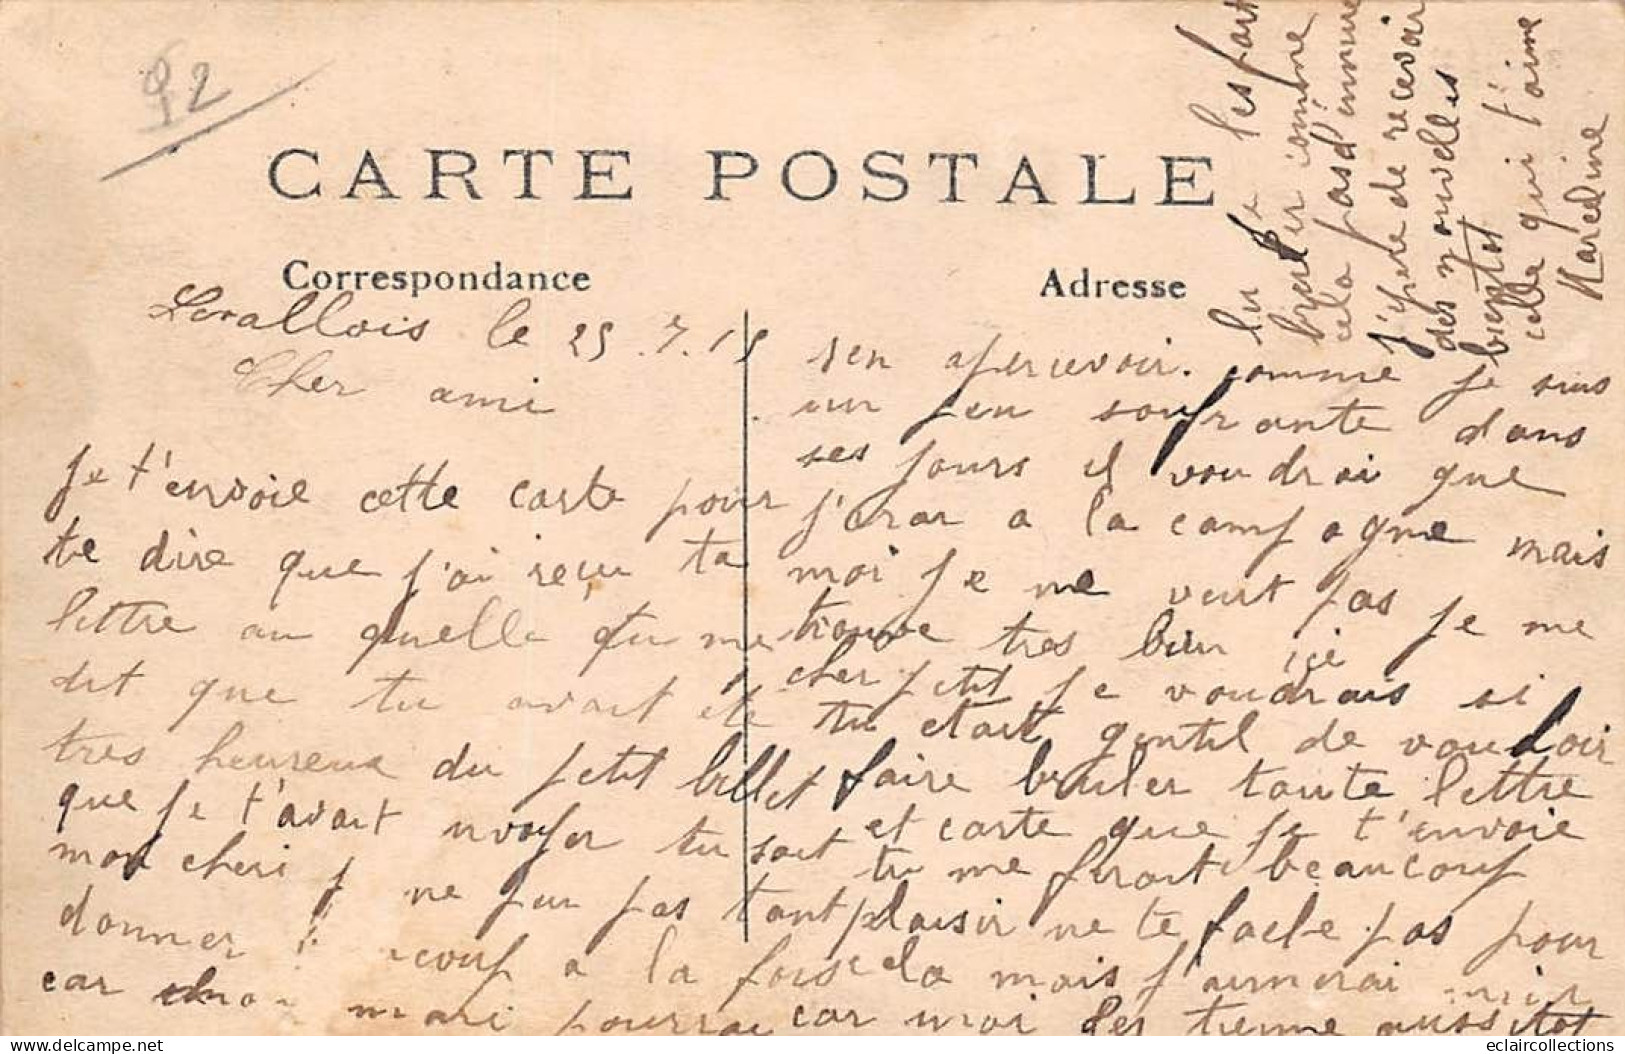 92
CARTE POSTALE
Correspondance
Adresse
Levallois le 25.7.15
Cher ami
je t'envoie cette carte pour
te dire que j'ai reçu ta
lettre au quelle tu me
dit que tu avait été
tres heureux du petit billet
que je t'avait nvoyer tu sait
mon cheri j ne peu pas tant
donner coup a la fois
car mari pourrai
sen apercevoir. comme je suis
un peu soufrante dans
ses jours il voudrai que
j'irai a la campagne mais
moi je ne veut pas je me
trouve tres bien ici
cher petit je voudrais si
tu etait gentil de vouloir
faire bruler toute lettre
et carte que je t'envoie
tu me ferait beaucoup
plaisir ne te fache pas pour
cela mais j'aimerai mieu
car moi les tienne aussitot
lu je les fait
bruler comme
cela pas d'ennuie
j'espere de recevoir
des nouvelles
bientot
celle qui t'aime
Marceline
eclaircollections
delcampe.net